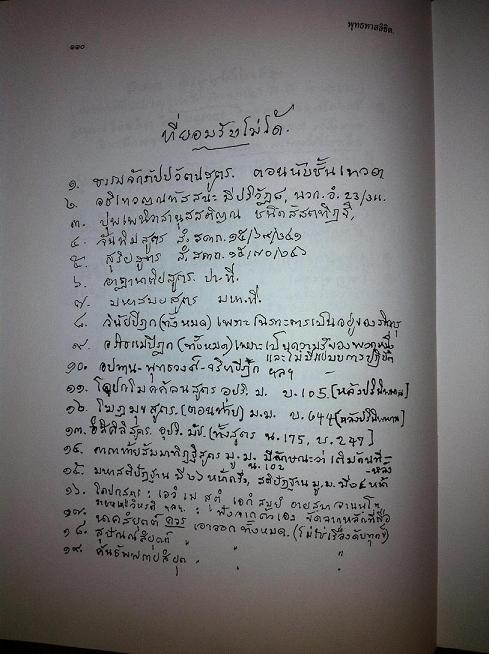 พุทธทาสลิขิต.
๑๑๐
ที่ยอมรับไม่ได้.
๑. ธรรมจักกัปปวัตตนสูตร. ตอนนับชั้นเทวดา
๒. อธิเทวญาณทัสสนะ มีปริวัฏ๘, นวก. อํ. 23/๓๑.
๓. ปุพเพนิวาสานุสสติญาณ ชนิดสัสสตทิฏฐิ,
๔. จันทิมสูตร สํ. สคาถ. ๑๕/๖๙/๒๔๑
๕. สุริยสูตร สํ. สคาถ. ๑๕/๗๐/๒๔๖
๖. อาฏานาฏิยสูตร. ปา. ที.
๗. มหาสมยสูตร มหา. ที.
๘. วินัยปิฎก (ทั้งหมด) เพราะ เป็นการเป็นอยู่ของภิกษุ
๙. อภิธรรมปิฎก (ทั้งหมด) เพราะเป็นความรู้ของพวกหนึ่ง
และไม่มีแบบการปฏิบัติ
๑๐. อปทาน-พุทธวงศ์-จริยาปิฎก ฯลฯ
๑๑. โคปกโมคคัลลานสูตร อุปริ. ม. บ. 105 [หลังปรินิพพาน]
๑๒. โฆฏมุขสูตร. (ตอนท้าย) ม.ม. บ. 644 [หลังปรินิพพาน]
๑๓. อิสิคิลิสูตร. อุปริ. ม. (ทั้งสูตร น. 175, บ. 247]
๑๔. สัมมาทิฏฐิสูตร มู. ม. มีลักษณะว่า เติมคัมภีร์
น. 102 -หลัง
๑๕. มหาสติปัฏฐาน ที. หลัง, สติปัฏฐาน มู. ม.
๑๖. เอวํ เม สุตํ เอกํ สมยํ
๑๗. นาคสังยุตต์ ควร เอาออกทั้งหมด. (ไม่ใช่เรื่องดับทุกข์)
๑๘. สุปัณณสังยุตต์ " "
๑๙. คันธัพพกายสังยุต " "